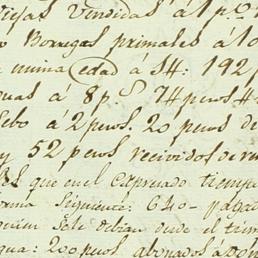 viejas vendidas á 1 p.o
Borregas primales á 10
misma edad á 14: 192 p
á 8 p.s 74 pesos 4
Sebo á 2 pesos. 20 pesos de
y 52 pesos recividos de
que en el expresado tiempo
forma siguiente: 640- pagad
quien se le debian desde el
200 pesos abonados á Don